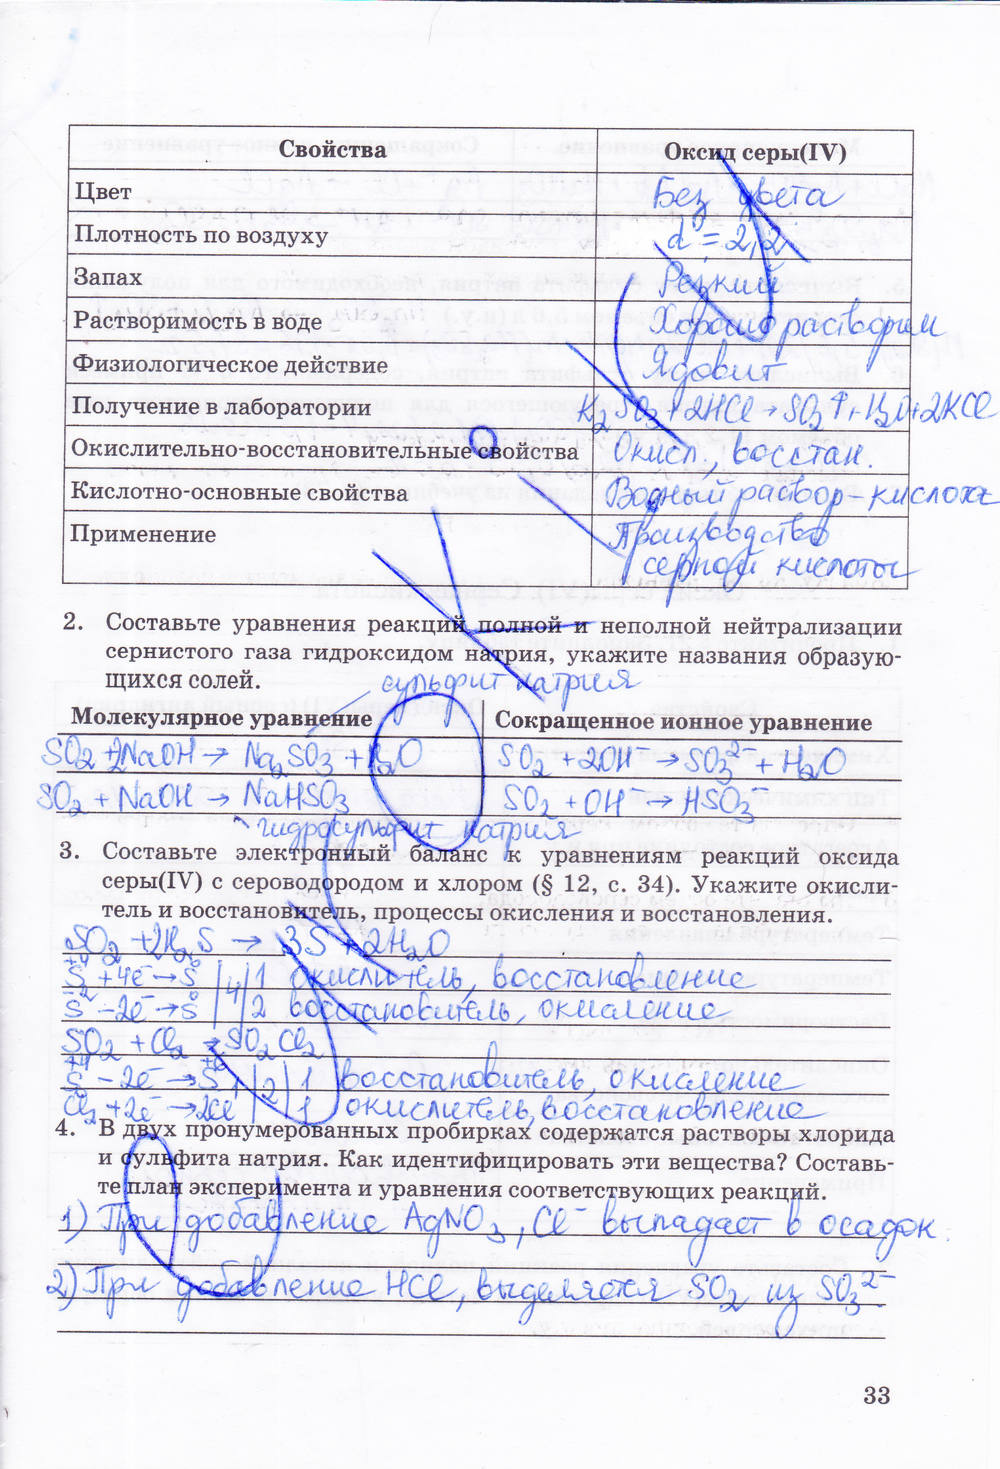 Свойства Оксид серы(IV)
Цвет Без цвета
Плотность по воздуху d = 2,2
Запах Резкий
Растворимость в воде Хорошо растворим
Физиологическое действие Ядовит
Получение в лаборатории K₂SO₃+2HCl→SO₂↑+H₂O+2KCl
Окислительно-восстановительные свойства Окисл. восстан.
Кислотно-основные свойства Водный раствор – кислота
Применение Производство
серной кислоты
2. Составьте уравнения реакций полной и неполной нейтрализации
сернистого газа гидроксидом натрия, укажите названия образую-
щихся солей.
сульфит натрия
Молекулярное уравнение Сокращенное ионное уравнение
SO₂ + 2NaOH → Na₂SO₃ + H₂O SO₂ + 2OH⁻ → SO₃²⁻ + H₂O
SO₂ + NaOH → NaHSO₃ SO₂ + OH⁻ → HSO₃⁻
гидросульфит натрия
3. Составьте электронный баланс к уравнениям реакций оксида
серы(IV) с сероводородом и хлором (§ 12, с. 34). Укажите окисли-
тель и восстановитель, процессы окисления и восстановления.
SO₂ + 2H₂S → 3S + 2H₂O
S⁺⁴ + 4e⁻ → S⁰ | 4 | 1 окислитель, восстановление
S⁻² – 2e⁻ → S⁰ | | 2 восстановитель, окисление
SO₂ + Cl₂ → SO₂Cl₂
S⁺⁴ – 2e⁻ → S⁺⁶ | 2 | 1 восстановитель, окисление
Cl₂ + 2e⁻ → 2Cl⁻ | 2 | 1 окислитель, восстановление
4. В двух пронумерованных пробирках содержатся растворы хлорида
и сульфита натрия. Как идентифицировать эти вещества? Составь-
те план эксперимента и уравнения соответствующих реакций.
1) При добавление AgNO₃, Cl⁻ выпадает в осадок.
2) При добавление HCl, выделяется SO₂ из SO₃²⁻
33